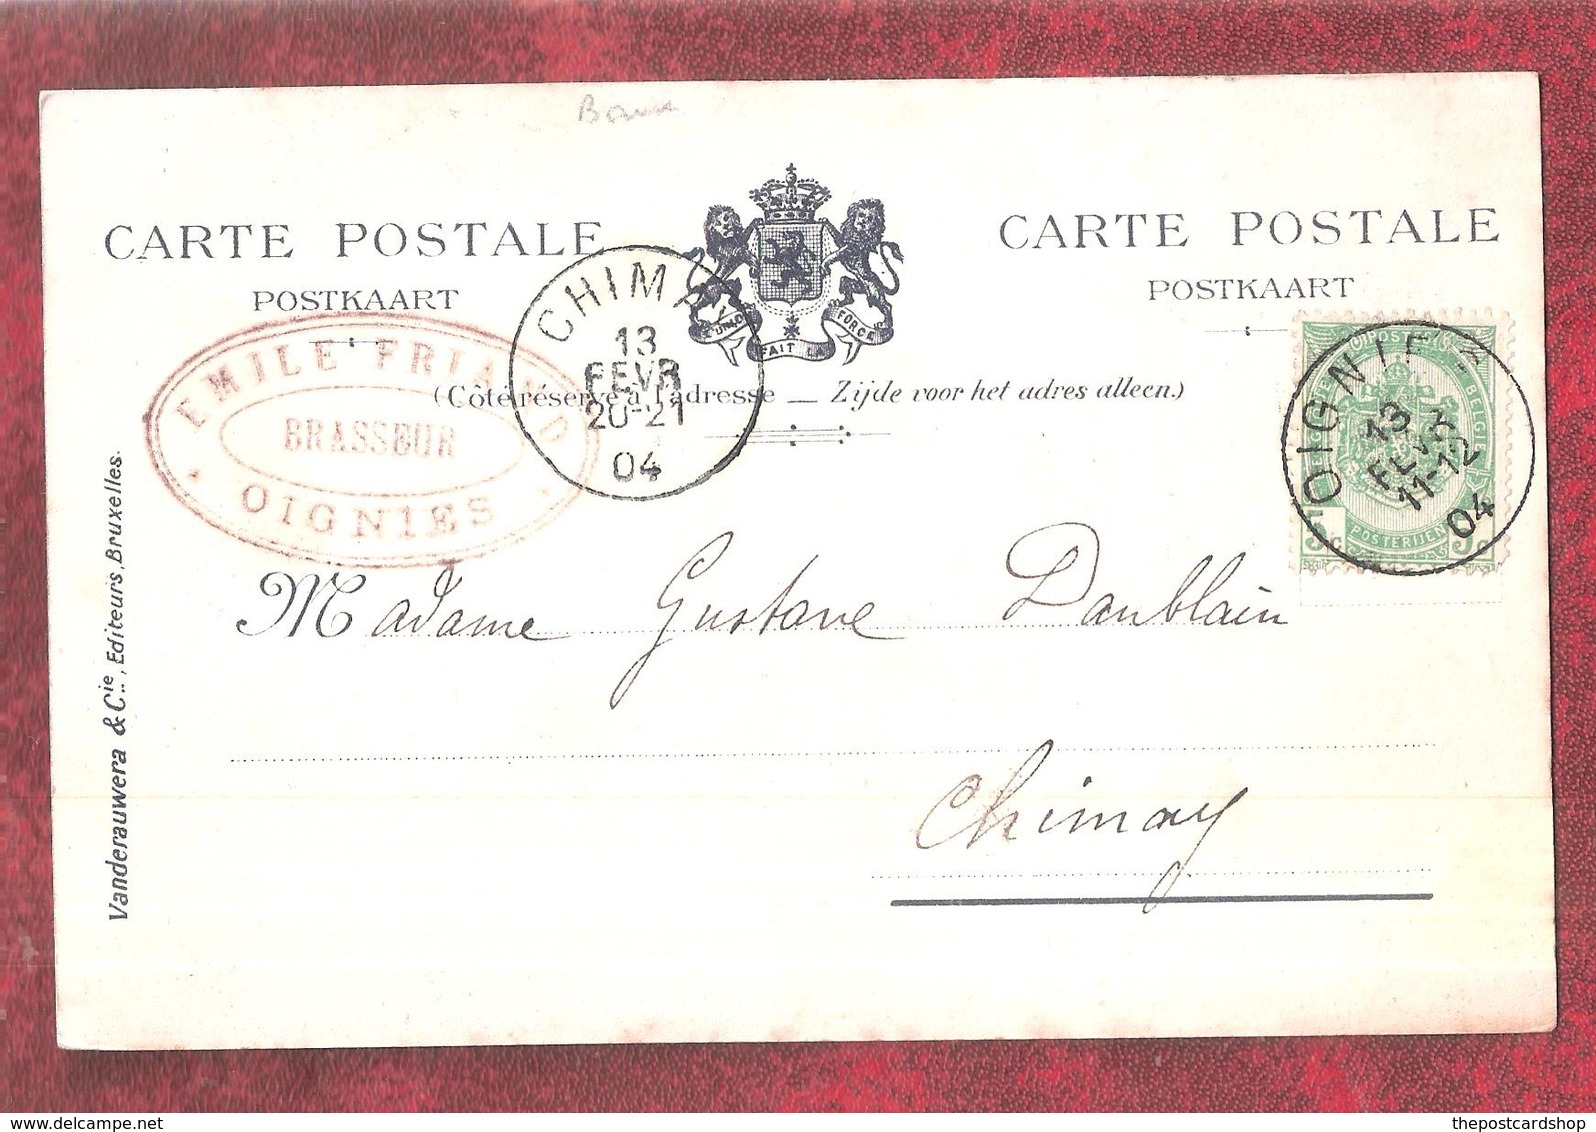 CARTE POSTALE
POSTKAART
CARTE POSTALE
POSTKAART
L'UNION FAIT FORCE
(Côté réservé à l'adresse — Zijde voor het adres alleen.)
EMILE FRIAND
BRASSEUR
OIGNIES
CHIMAY
13
FEVR
20-21
04
OIGNIES
13
FEVR
11-12
04
BELGIE
POSTERIJEN
5c 5c
Madame Gustave Danblain
Chimay
Vanderauwera & Cie., Editeurs, Bruxelles.
thepostcardshop